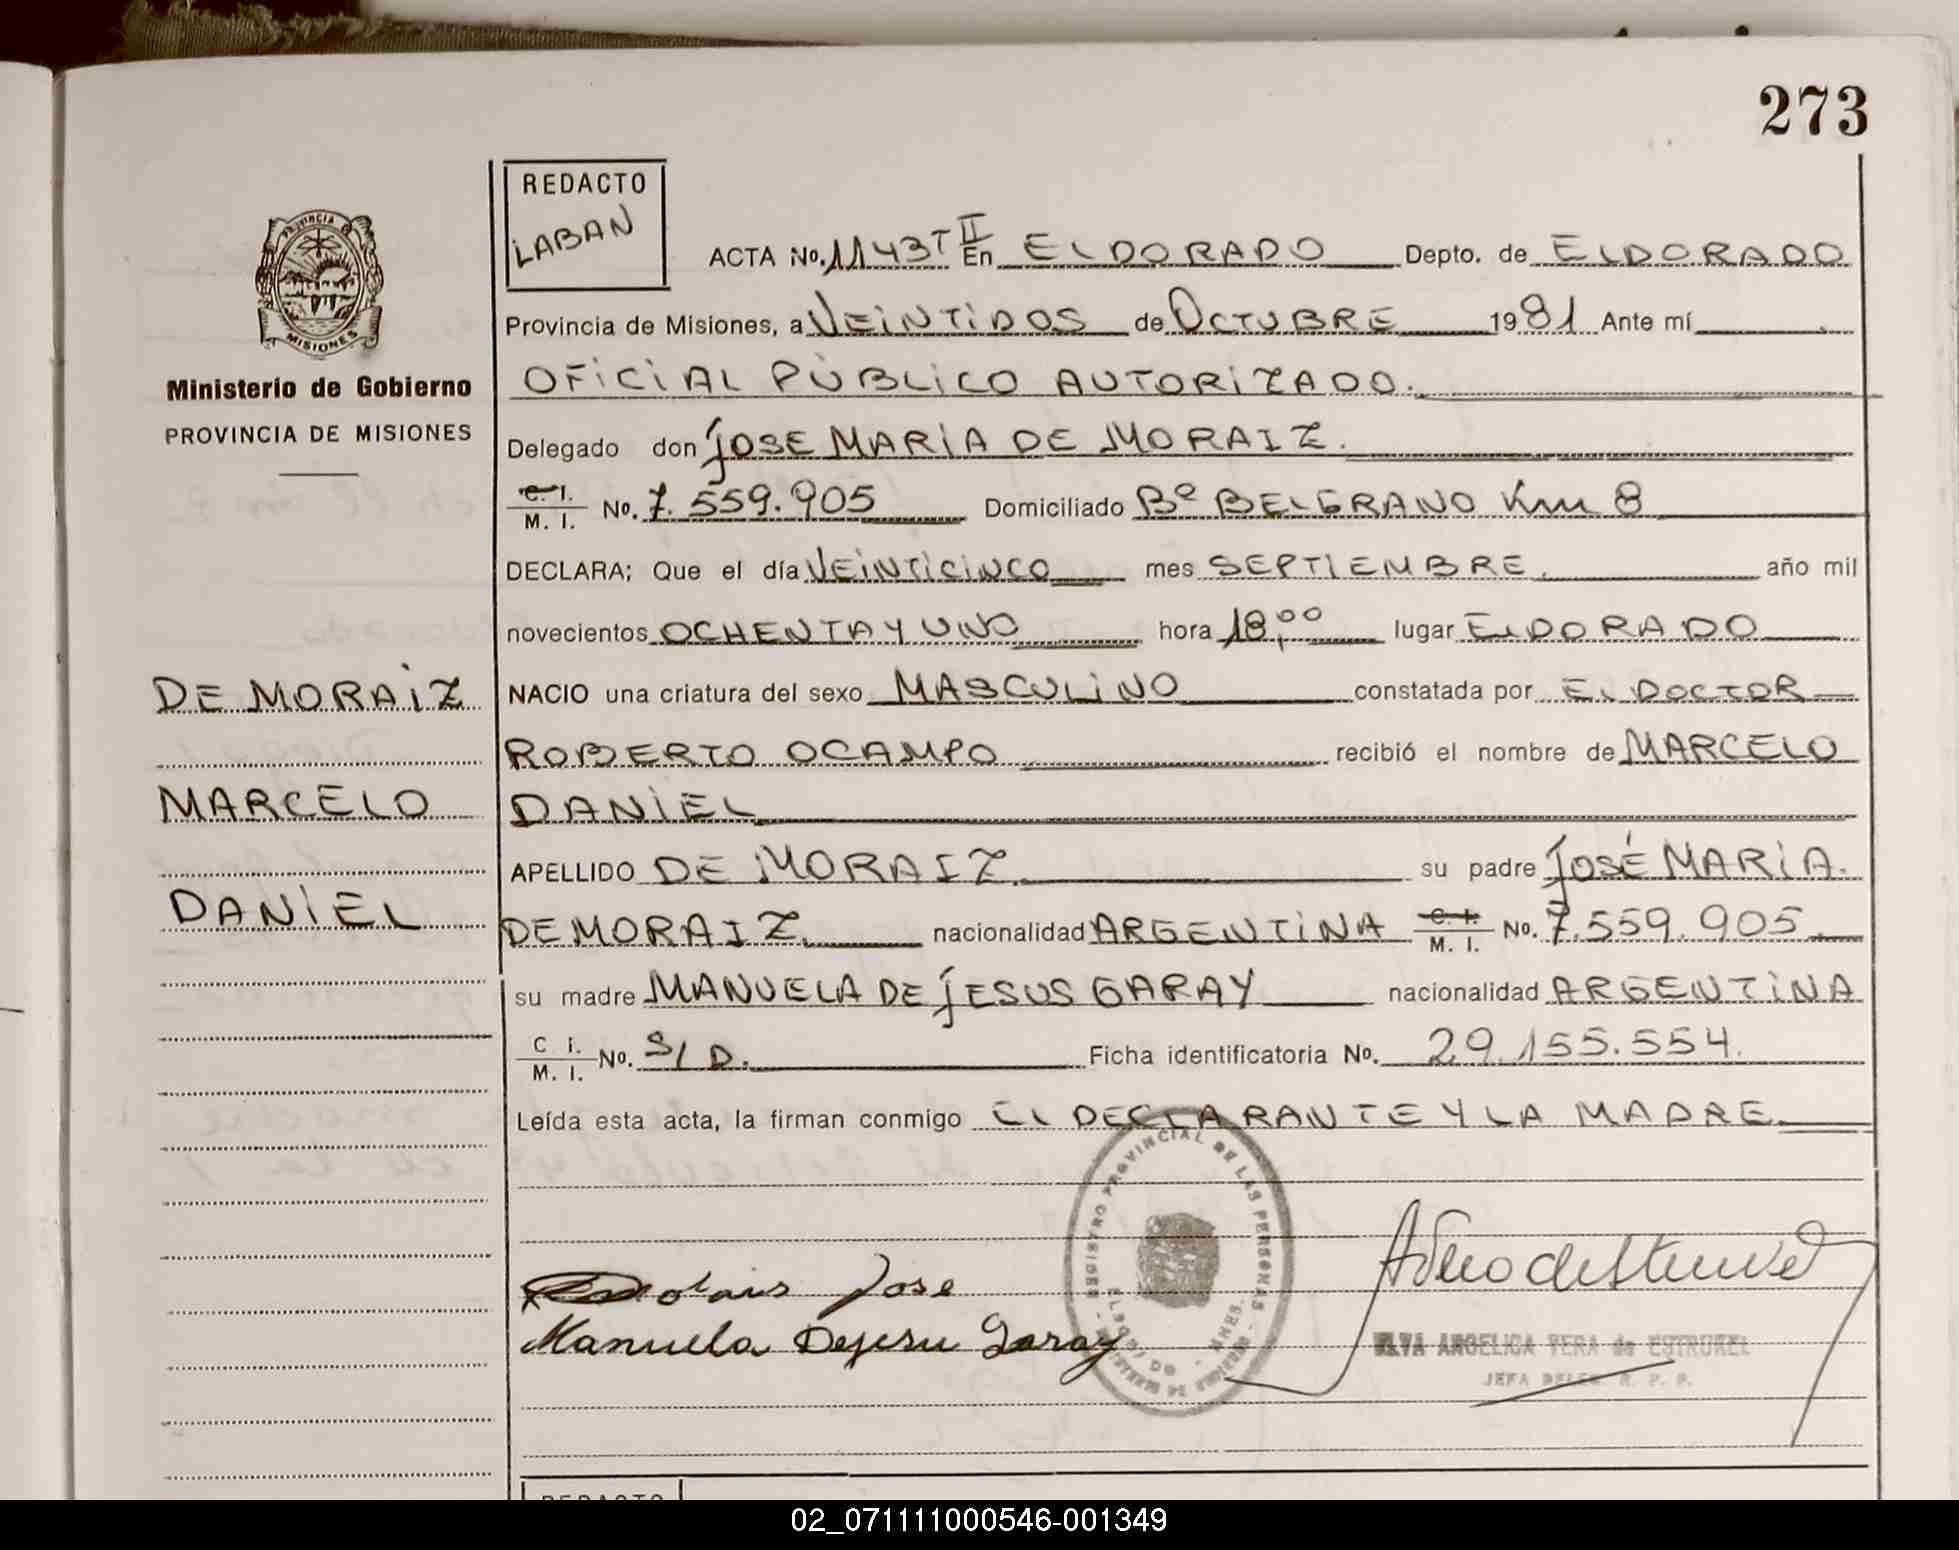 273
PROVINCIA
MISIONES
Ministerio de Gobierno
PROVINCIA DE MISIONES
DE MORAIZ
MARCELO
DANIEL
REDACTO
LABAN
ACTA No. 1143 T II En ELDORADO Depto. de ELDORADO
Provincia de Misiones, a VEINTIDOS de OCTUBRE 1981 Ante mí
OFICIAL PÚBLICO AUTORIZADO.
Delegado don JOSE MARIA DE MORAIZ.
C. I. M. I. No. 7.559.905 Domiciliado Bº BELGRANO Km 8
DECLARA; Que el día VEINTICINCO mes SEPTIEMBRE. año mil
novecientos OCHENTA Y UNO hora 18,00 lugar ELDORADO
NACIO una criatura del sexo MASCULINO constatada por EL DOCTOR
ROBERTO OCAMPO recibió el nombre de MARCELO
DANIEL
APELLIDO DE MORAIZ. su padre JOSÉ MARIA.
DE MORAIZ. nacionalidad ARGENTINA C. I. M. I. No. 7.559.905.
su madre MANUELA DE JESUS GARAY nacionalidad ARGENTINA
C i. M. I. No. S/D. Ficha identificatoria No. 29.155.554.
Leída esta acta, la firman conmigo EL DECLARANTE Y LA MADRE.
REGISTRO PROVINCIAL DE LAS PERSONAS
Jose
Manuela Dejesu Garay
ELVA ANGELICA VERA de ESTRUBEL
JEFA DELEG. R. P. P.
REDACTO
02_071111000546-001349